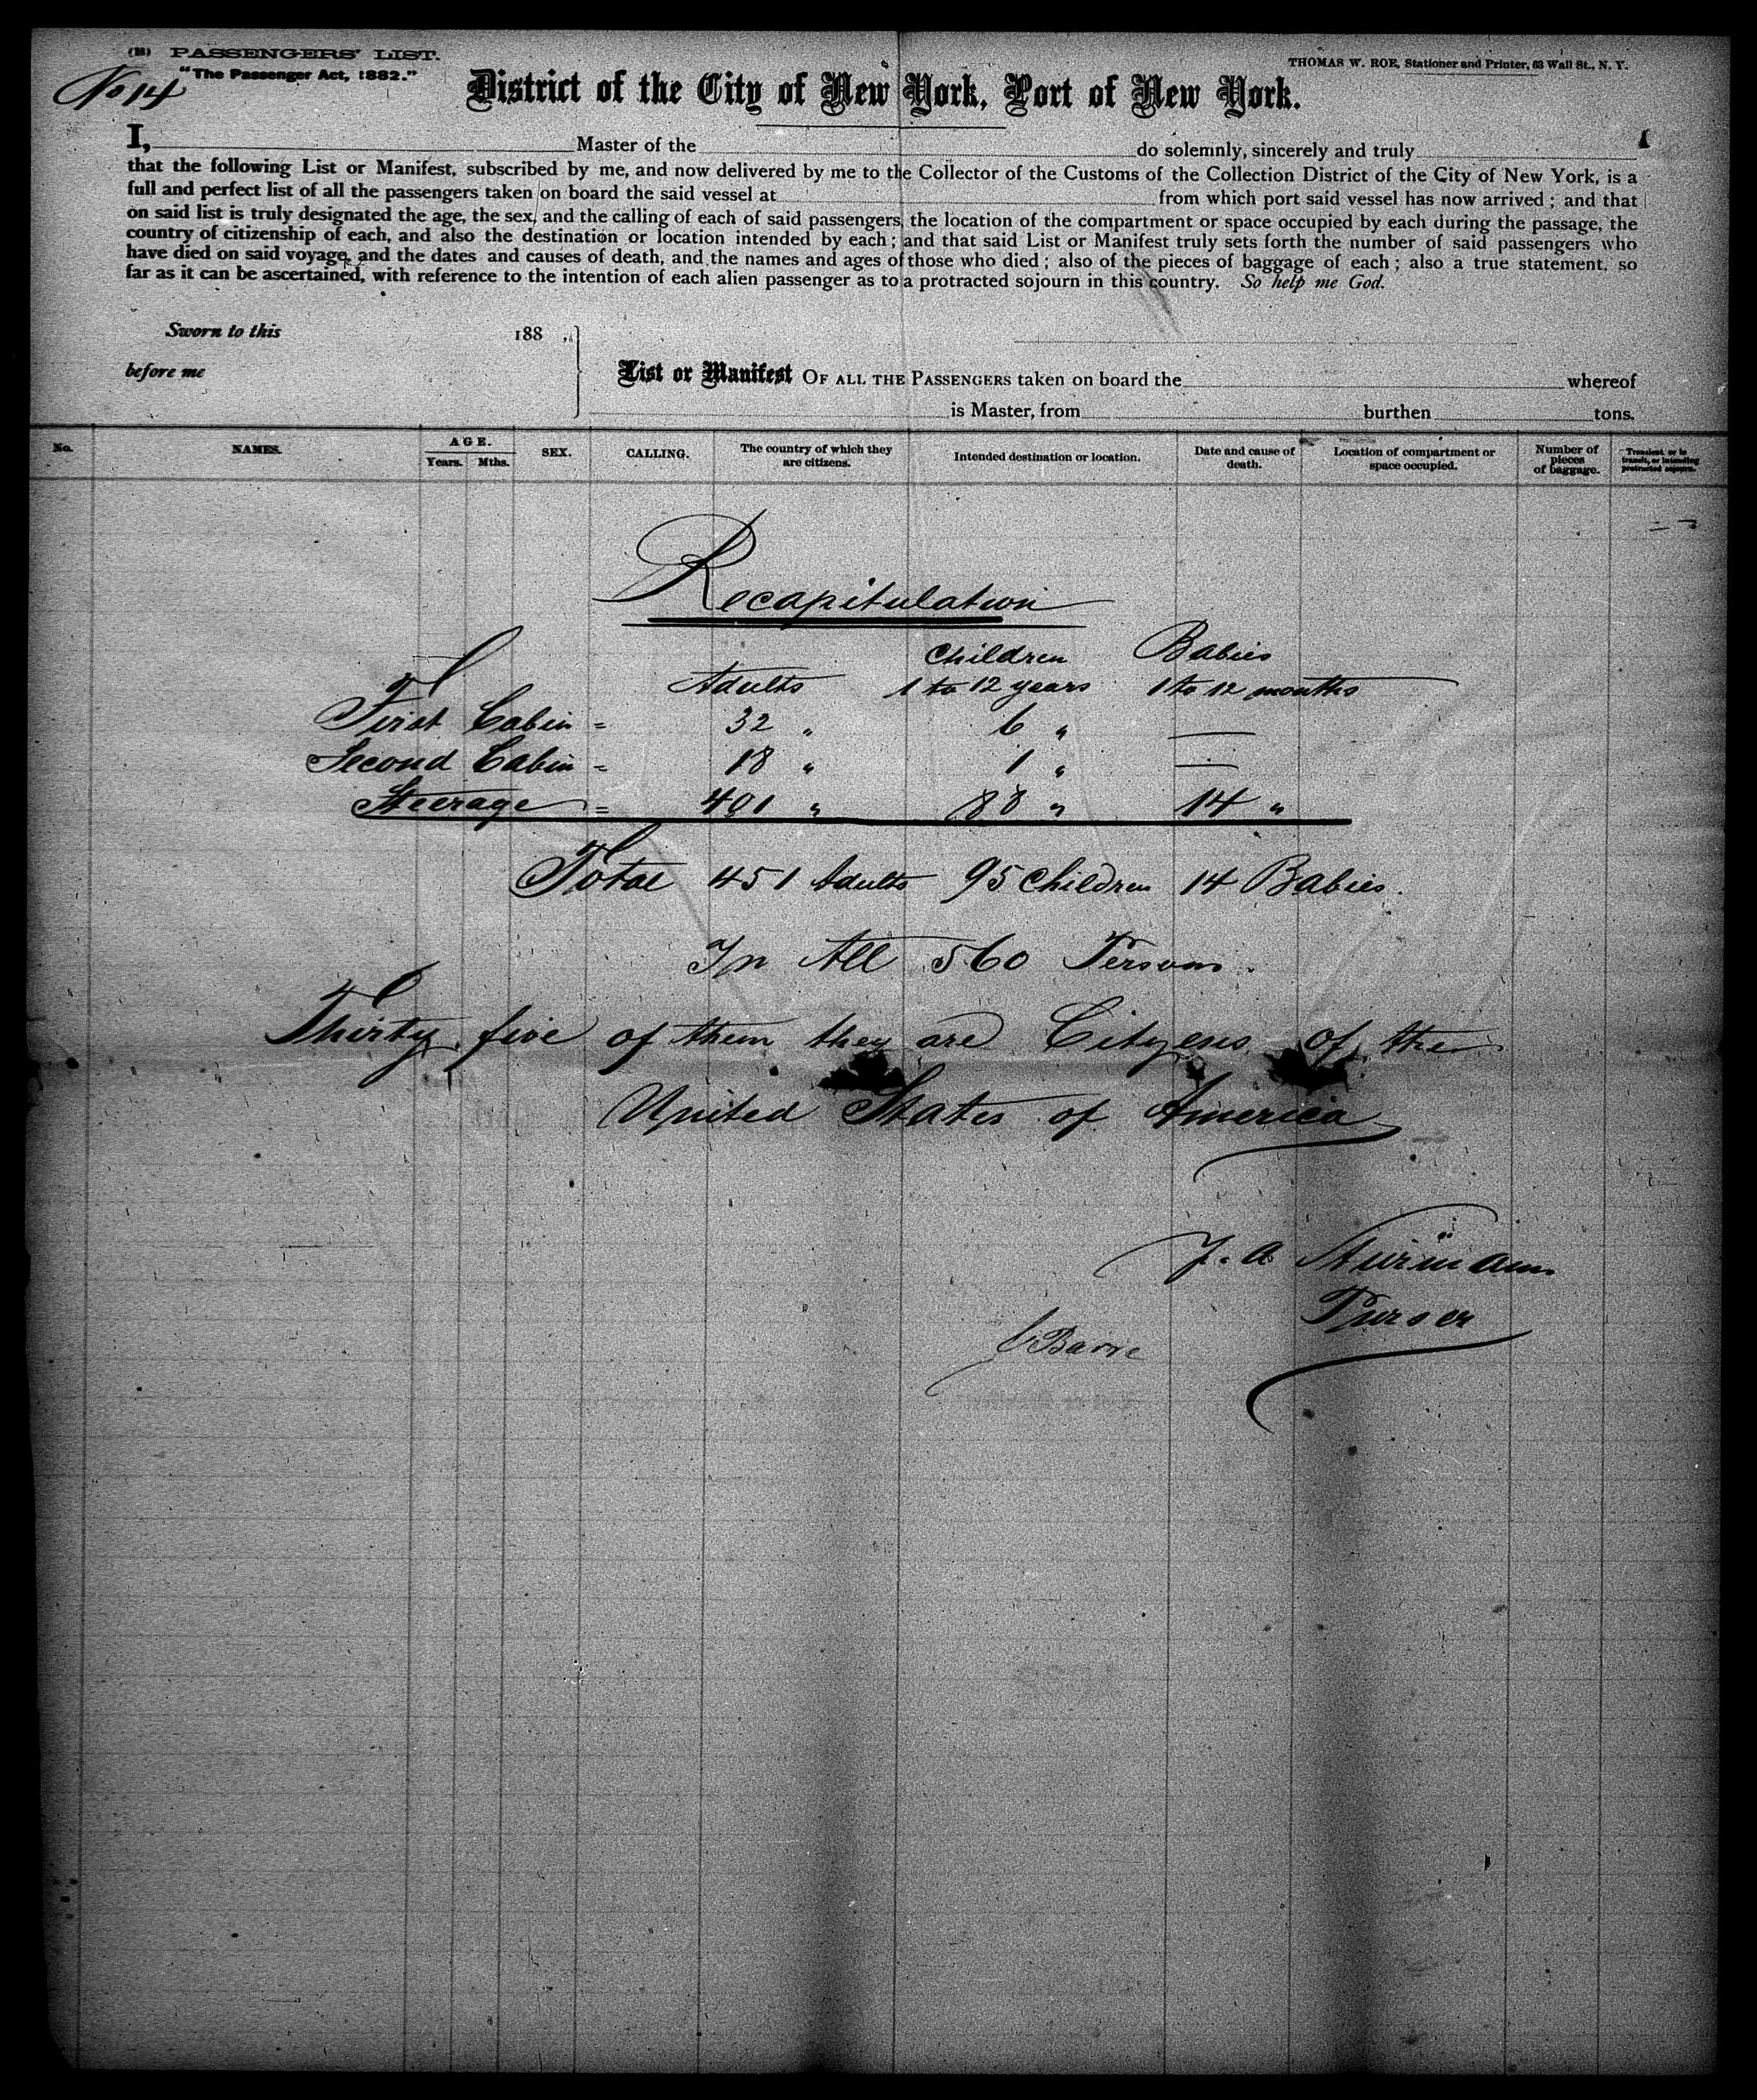 (B) PASSENGERS' LIST.
"The Passenger Act, 1882."
THOMAS W. ROE, Stationer and Printer, 63 Wall St., N. Y.
No 14
District of the City of New York, Port of New York.
I, Master of the do solemnly, sincerely and truly
that the following List or Manifest, subscribed by me, and now delivered by me to the Collector of the Customs of the Collection District of the City of New York, is a
full and perfect list of all the passengers taken on board the said vessel at from which port said vessel has now arrived; and that
on said list is truly designated the age, the sex, and the calling of each of said passengers, the location of the compartment or space occupied by each during the passage, the
country of citizenship of each, and also the destination or location intended by each; and that said List or Manifest truly sets forth the number of said passengers who
have died on said voyage, and the dates and causes of death, and the names and ages of those who died; also of the pieces of baggage of each; also a true statement, so
far as it can be ascertained, with reference to the intention of each alien passenger as to a protracted sojourn in this country. So help me God.
Sworn to this 188
before me
List or Manifest OF ALL THE PASSENGERS taken on board the whereof
is Master, from burthen tons.
No. NAMES. AGE. Years. Mths. SEX. CALLING. The country of which they are citizens. Intended destination or location. Date and cause of death. Location of compartment or space occupied. Number of pieces of baggage. Transient or in transit, or intending protracted sojourn.
Recapitulation
Children Babies
Adults 1 to 12 years 1 to 12 months
First Cabin = 32 " 6 " —
Second Cabin = 18 " 1 " —
Steerage = 401 " 88 " 14 "
Total 451 Adults 95 Children 14 Babies.
In All 560 Persons.
Thirty five of them they are Cityens of the
United States of America
Purser